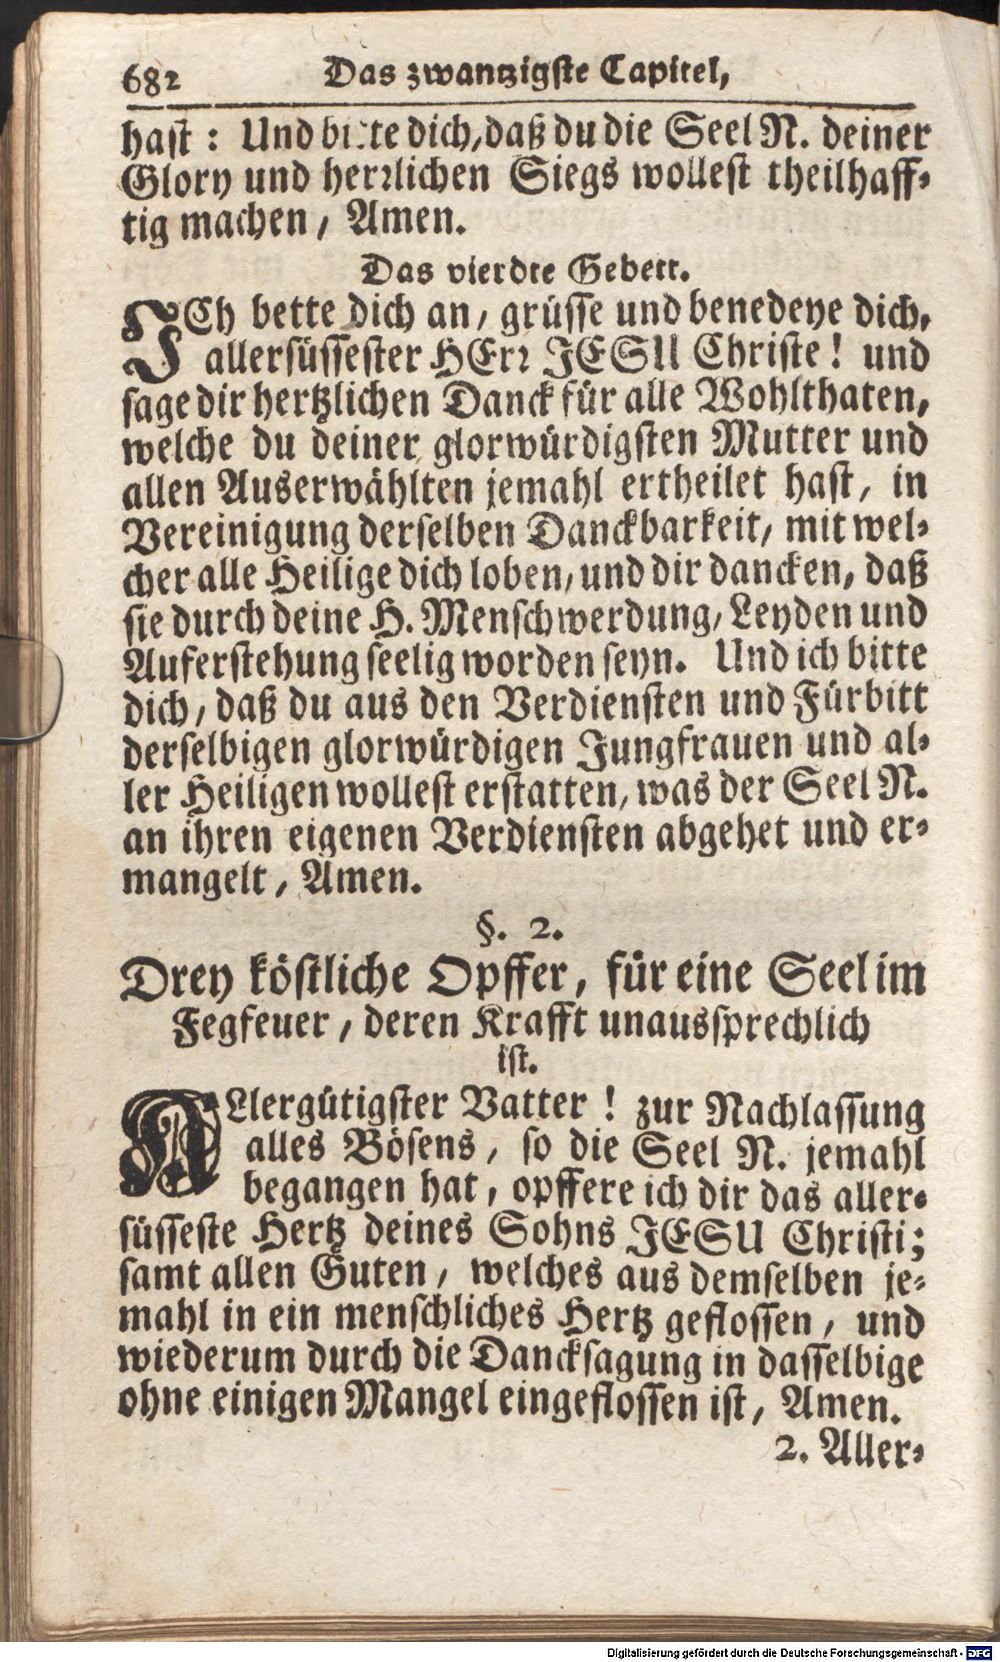 682 Das zwantzigste Capitel,
hast : Und bitte dich, daß du die Seel N. deiner
Glory und herrlichen Siegs wollest theilhaff-
tig machen / Amen.
Das vierdte Gebett.
JCh bette dich an / grüsse und benedeye dich,
allersüssester HErr JESU Christe! und
sage dir hertzlichen Danck für alle Wohlthaten,
welche du deiner glorwürdigsten Mutter und
allen Auserwählten jemahl ertheilet hast, in
Vereinigung derselben Danckbarkeit, mit wel-
cher alle Heilige dich loben, und dir dancken, daß
sie durch deine H. Menschwerdung, Leyden und
Auferstehung seelig worden seyn. Und ich bitte
dich, daß du aus den Verdiensten und Fürbitt
derselbigen glorwürdigen Jungfrauen und al-
ler Heiligen wollest erstatten, was der Seel N.
an ihren eigenen Verdiensten abgehet und er-
mangelt / Amen.
§. 2.
Drey köstliche Opffer, für eine Seel im
Fegfeuer / deren Krafft unaussprechlich
ist.
ALlergütigster Vatter ! zur Nachlassung
alles Bösens, so die Seel N. jemahl
begangen hat, opffere ich dir das aller-
süsseste Hertz deines Sohns JESU Christi;
samt allen Guten / welches aus demselben je-
mahl in ein menschliches Hertz geflossen, und
wiederum durch die Dancksagung in dasselbige
ohne einigen Mangel eingeflossen ist, Amen.
2. Aller-
Digitalisierung gefördert durch die Deutsche Forschungsgemeinschaft - DFG